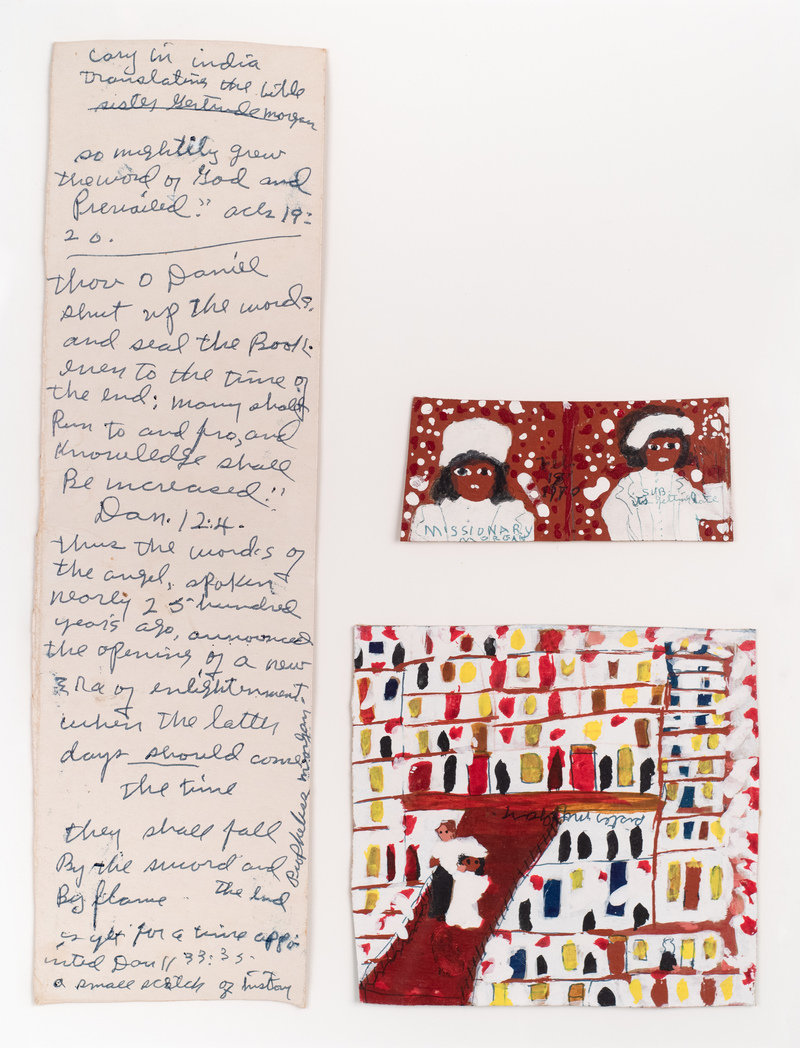 cary in india
translating the bible
sister Gertrude morgan
so mightily grew
the word of God and
Prevailed." acts 19:
20.
thou o Daniel
shut up the words.
and seal the Book.
even to the time of
the end; many shall
Run to and fro, and
Knowledge shall
Be increased!!
Dan. 12:4.
thus the words of
the angel, spoken
nearly 25 hundred
years ago, announced
the opening of a new
Era of enlightenment.
when the latter
days should come
The time
they shall fall
By the sword and
By flame the end
is yet for a time appo
inted Dan 11 33:35.
a small scetch of history
Prophetess morgan.
MISSIONARY
MORGAN
1970
SUB
its getting late
sister morgan